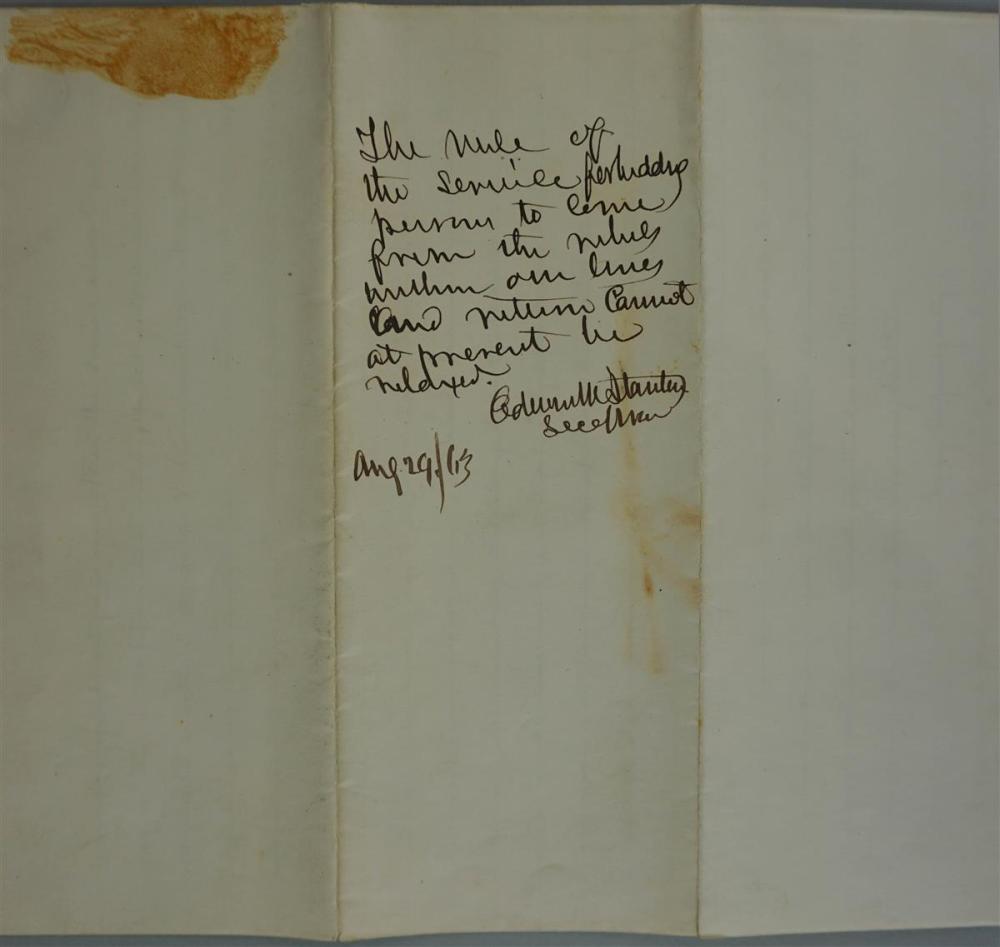 The rule of
the service forbidding
persons to come
from the rebels
within our lines
and return cannot
at present be
relaxed.
Edwin M Stanton
Sec of War
Aug 29/63